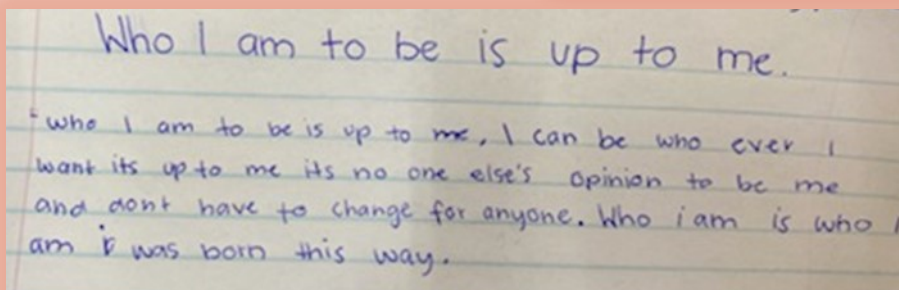 Who I am to be is up to me.
"who I am to be is up to me, I can be who ever I
want its up to me its no one else's opinion to be me
and dont have to change for anyone. Who i am is who I
am i was born this way.